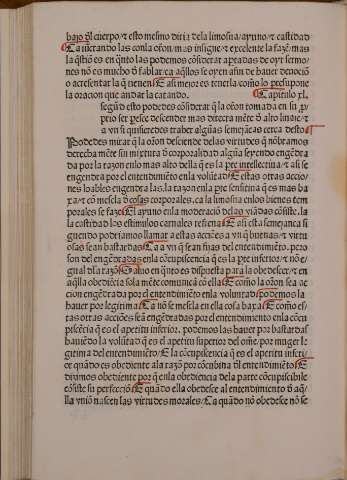 bajo ðl cuerpo/ t esto mesmo diria de la limosna/ ayuno/ t castidad
Ca iuerando las con la oroñ/ mas insigne/ t excelente la fazẽ/ mas
la q̃stiõ es en q̃nto las podemos cõsiderar aptadas de oyr sermo/
nes nõ es mucho ð fablar/ ca aq̃llos se oyen a fin de hauer deuociõ
o acrescentar la q̃ tienen/ E asi mejor es tenerla como lo presupone
la oracion que andar la catando. Capitulo xl.
segũd esto podedes cõsiderar q̃ la oroñ tomada en su ꝓ/
prio ser pesce descender mas directa mẽte ð alto linaje/ t
a vn si quisieredes traher algũas semejãças cerca desto
Podedes mirar q̃ la oroñ desciende de las virtudes q̃ nõbramos
derecha mẽte sin mixtura ð corporalidad algũa seyendo engẽdra
da por la razon en lo mas alto della q̃ es la pte intellectiua/ t asi se
engendra por el entendimiẽto en la volũtad/ E estas otras accio/
nes loables engendra las la razon en la pte sensitiua q̃ es mas ba
xa/ t cõ mescla ð cosas corporales. ca la limosna en los bienes tem
porales se faze/ El ayuno en la moderaciõ delas viãdas cõsiste. la
la castidad los estimulos carnales refrena/ E asi esta semejança si
guendo podriamos llamar a estas acciões a vn q̃ buenas/ t virtu
osas sean bastardas/ Ca a vn q̃ sean fijas del entendimiẽto. pero
son del engẽdradas en la cõcupiscencia q̃ es la pte inferior/ t nõ e/
gual ð la razõ/ Saluo en quãto es dispuesta para la obedescer/ t en
aq̃lla obediẽcia sola mẽte comunica cõ ella/ E como la oroñ sea ac
ciõn engẽdrada por el entendimiẽto en la voluntad podemos la
hauer por legitima/ Ca nõ se mescla en ella cosa baxa/ E como es/
tas otras acciões seã engẽdradas por el entendimiento en la cõcu
piscẽcia q̃ es el apetitu inferior. podemos las hauer por bastardas
hauiẽdo la volũtad q̃ es el apetitu superior del oñie. por muger le
gitima del entendimiẽto/ E la cõcupiscencia q̃ es el apetitu inferi/
or quãdo es obediente a la razõ por concubina ðl entendimiẽto/ E
diximos obediente por q̃ en la obediencia dela parte cõcupiscibile
cõsiste su perfecciõ/ E quãdo ella obedesce al entendimiento ð aq̃/
lla vniõ nascen las virtudes morales/ Ca quãdo nõ obedesce nõ se